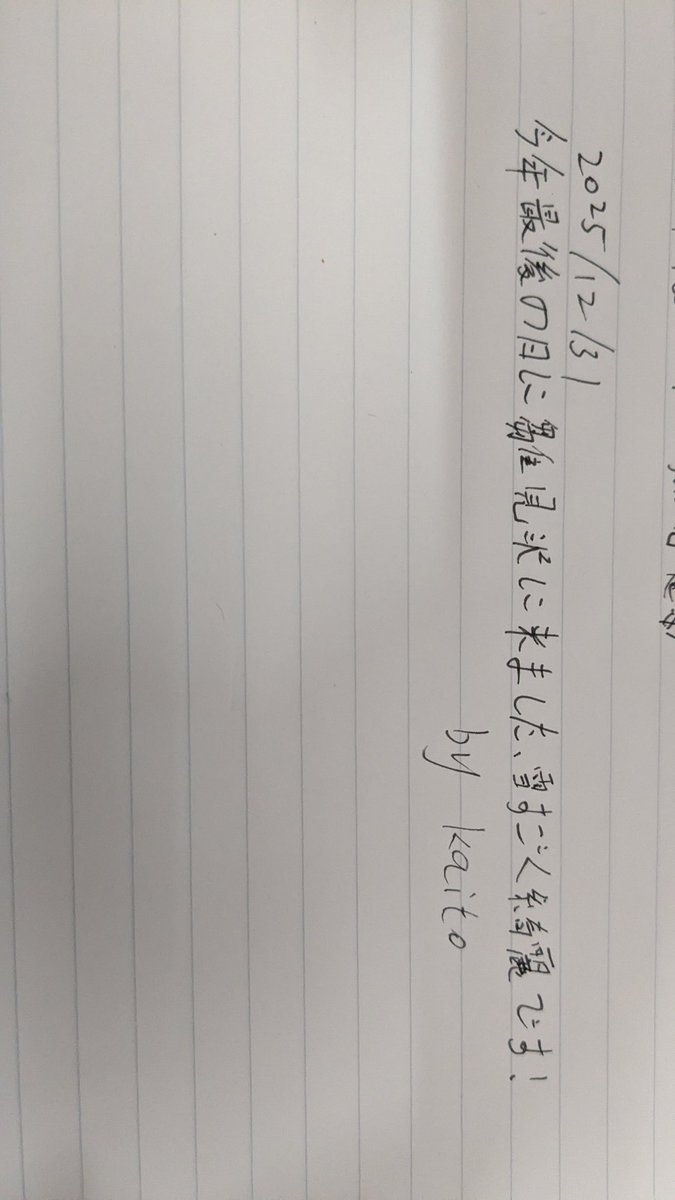 2025/12/31
今年最後の日に岩見沢に来ました、雪すごく綺麗です!
by kaito